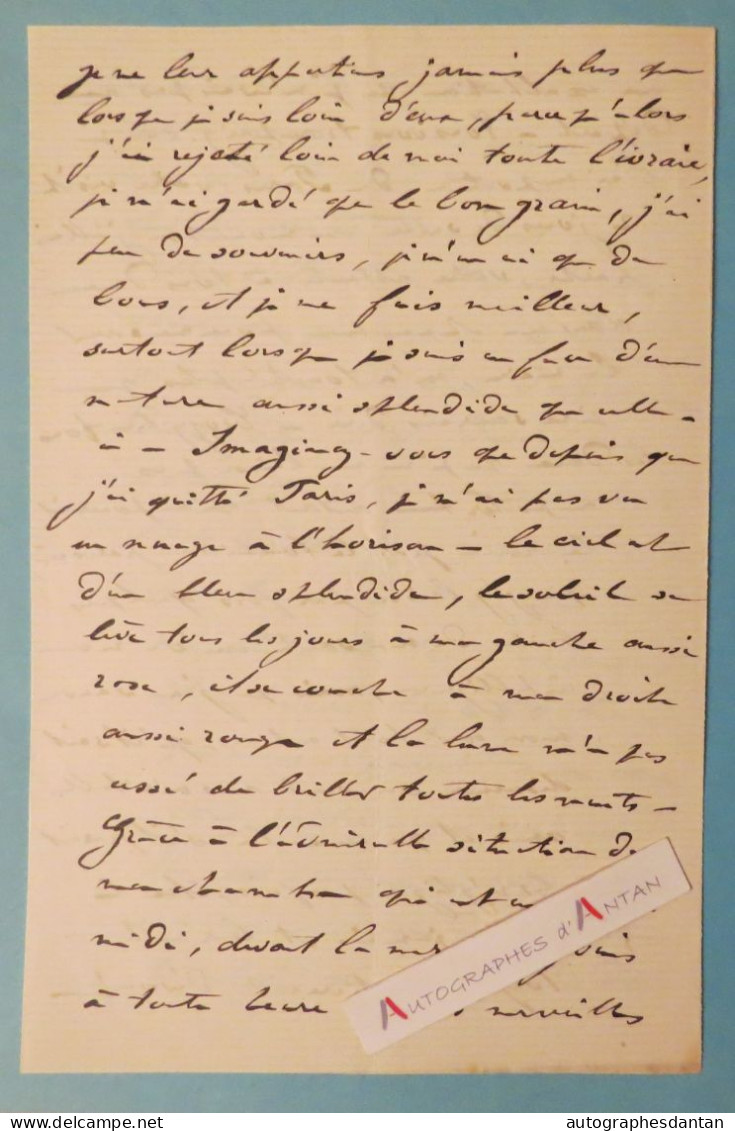 je ne leur appartiens jamais plus que
lorsque je suis loin d'eux, parce qu'alors
j'ai rejeté loin de moi toute l'ivraie,
je n'ai gardé que le bon grain, j'ai
peu de souvenirs, je n'en ai que de
bons, et je me fais meilleur,
surtout lorsque je suis en face d'une
nature aussi splendide que celle-
ci - Imaginez-vous que depuis que
j'ai quitté Paris, je n'ai pas vu
un nuage à l'horison - le ciel est
d'un bleu splendide, le soleil se
lève tous les jours à ma gauche aussi
rose, il se couche à ma droite
aussi rouge et la lune n'a pas
cessé de briller toutes les nuits -
Grâce à l'admirable situation de
ma chambre qui est
midi, devant la mer suis
à toute heure merveilles
AUTOGRAPHES d'ANTAN
delcampe.net
autographesdantan